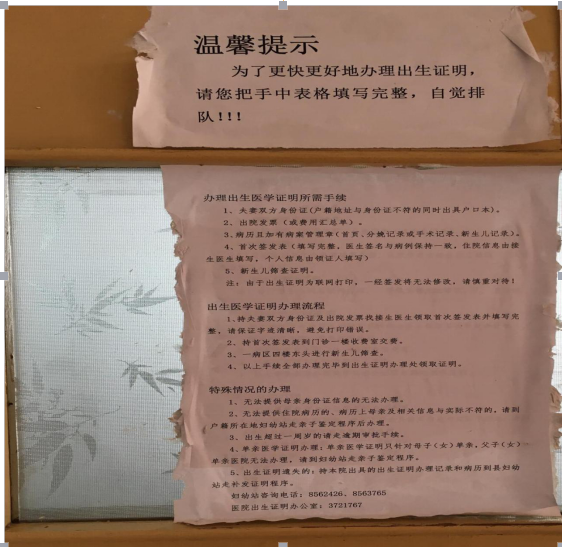 温馨提示
为了更快更好地办理出生证明，
请您把手中表格填写完整，自觉排
队!!!
办理出生医学证明所需手续
1、夫妻双方身份证(户籍地址与身份证不符的同时出具户口本)。
2、出院发票（或费用汇总单）。
3、病历且加有病案管理章(首页、分娩记录或手术记录、新生儿记录)。
4、首次签发表（填写完整，医生签名与病例保持一致，住院信息由接
生医生填写，个人信息由领证人填写）
5、新生儿筛查证明。
注：由于出生证明为联网打印，一经签发将无法修改，请慎重对待！
出生医学证明办理流程
1、持夫妻双方身份证及出院发票找接生医生领取首次签发表并填写完
整，请保证字迹清晰，避免打印错误。
2、持首次签发表到门诊一楼收费室交费。
3、一病区四楼东头进行新生儿筛查。
4、以上手续全部办理完毕到出生证明办理处领取证明。
特殊情况的办理
1、无法提供母亲身份证信息的无法办理。
2、无法提供住院病历的、病历上母亲及相关信息与实际不符的，请到
户籍所在地妇幼站走亲子鉴定程序后办理。
3、出生超过一周岁的请走逾期审批手续。
4、单亲医学证明办理：单亲医学证明只针对母子(女)单亲，父子(女)
单亲医院无法办理，请到妇幼站走亲子鉴定程序。
5、出生证明遗失的：持本院出具的出生证明办理记录和病历到县妇幼
站走补发证明程序。
妇幼站咨询电话：8562426、8563765
医院出生证明办公室：3721767